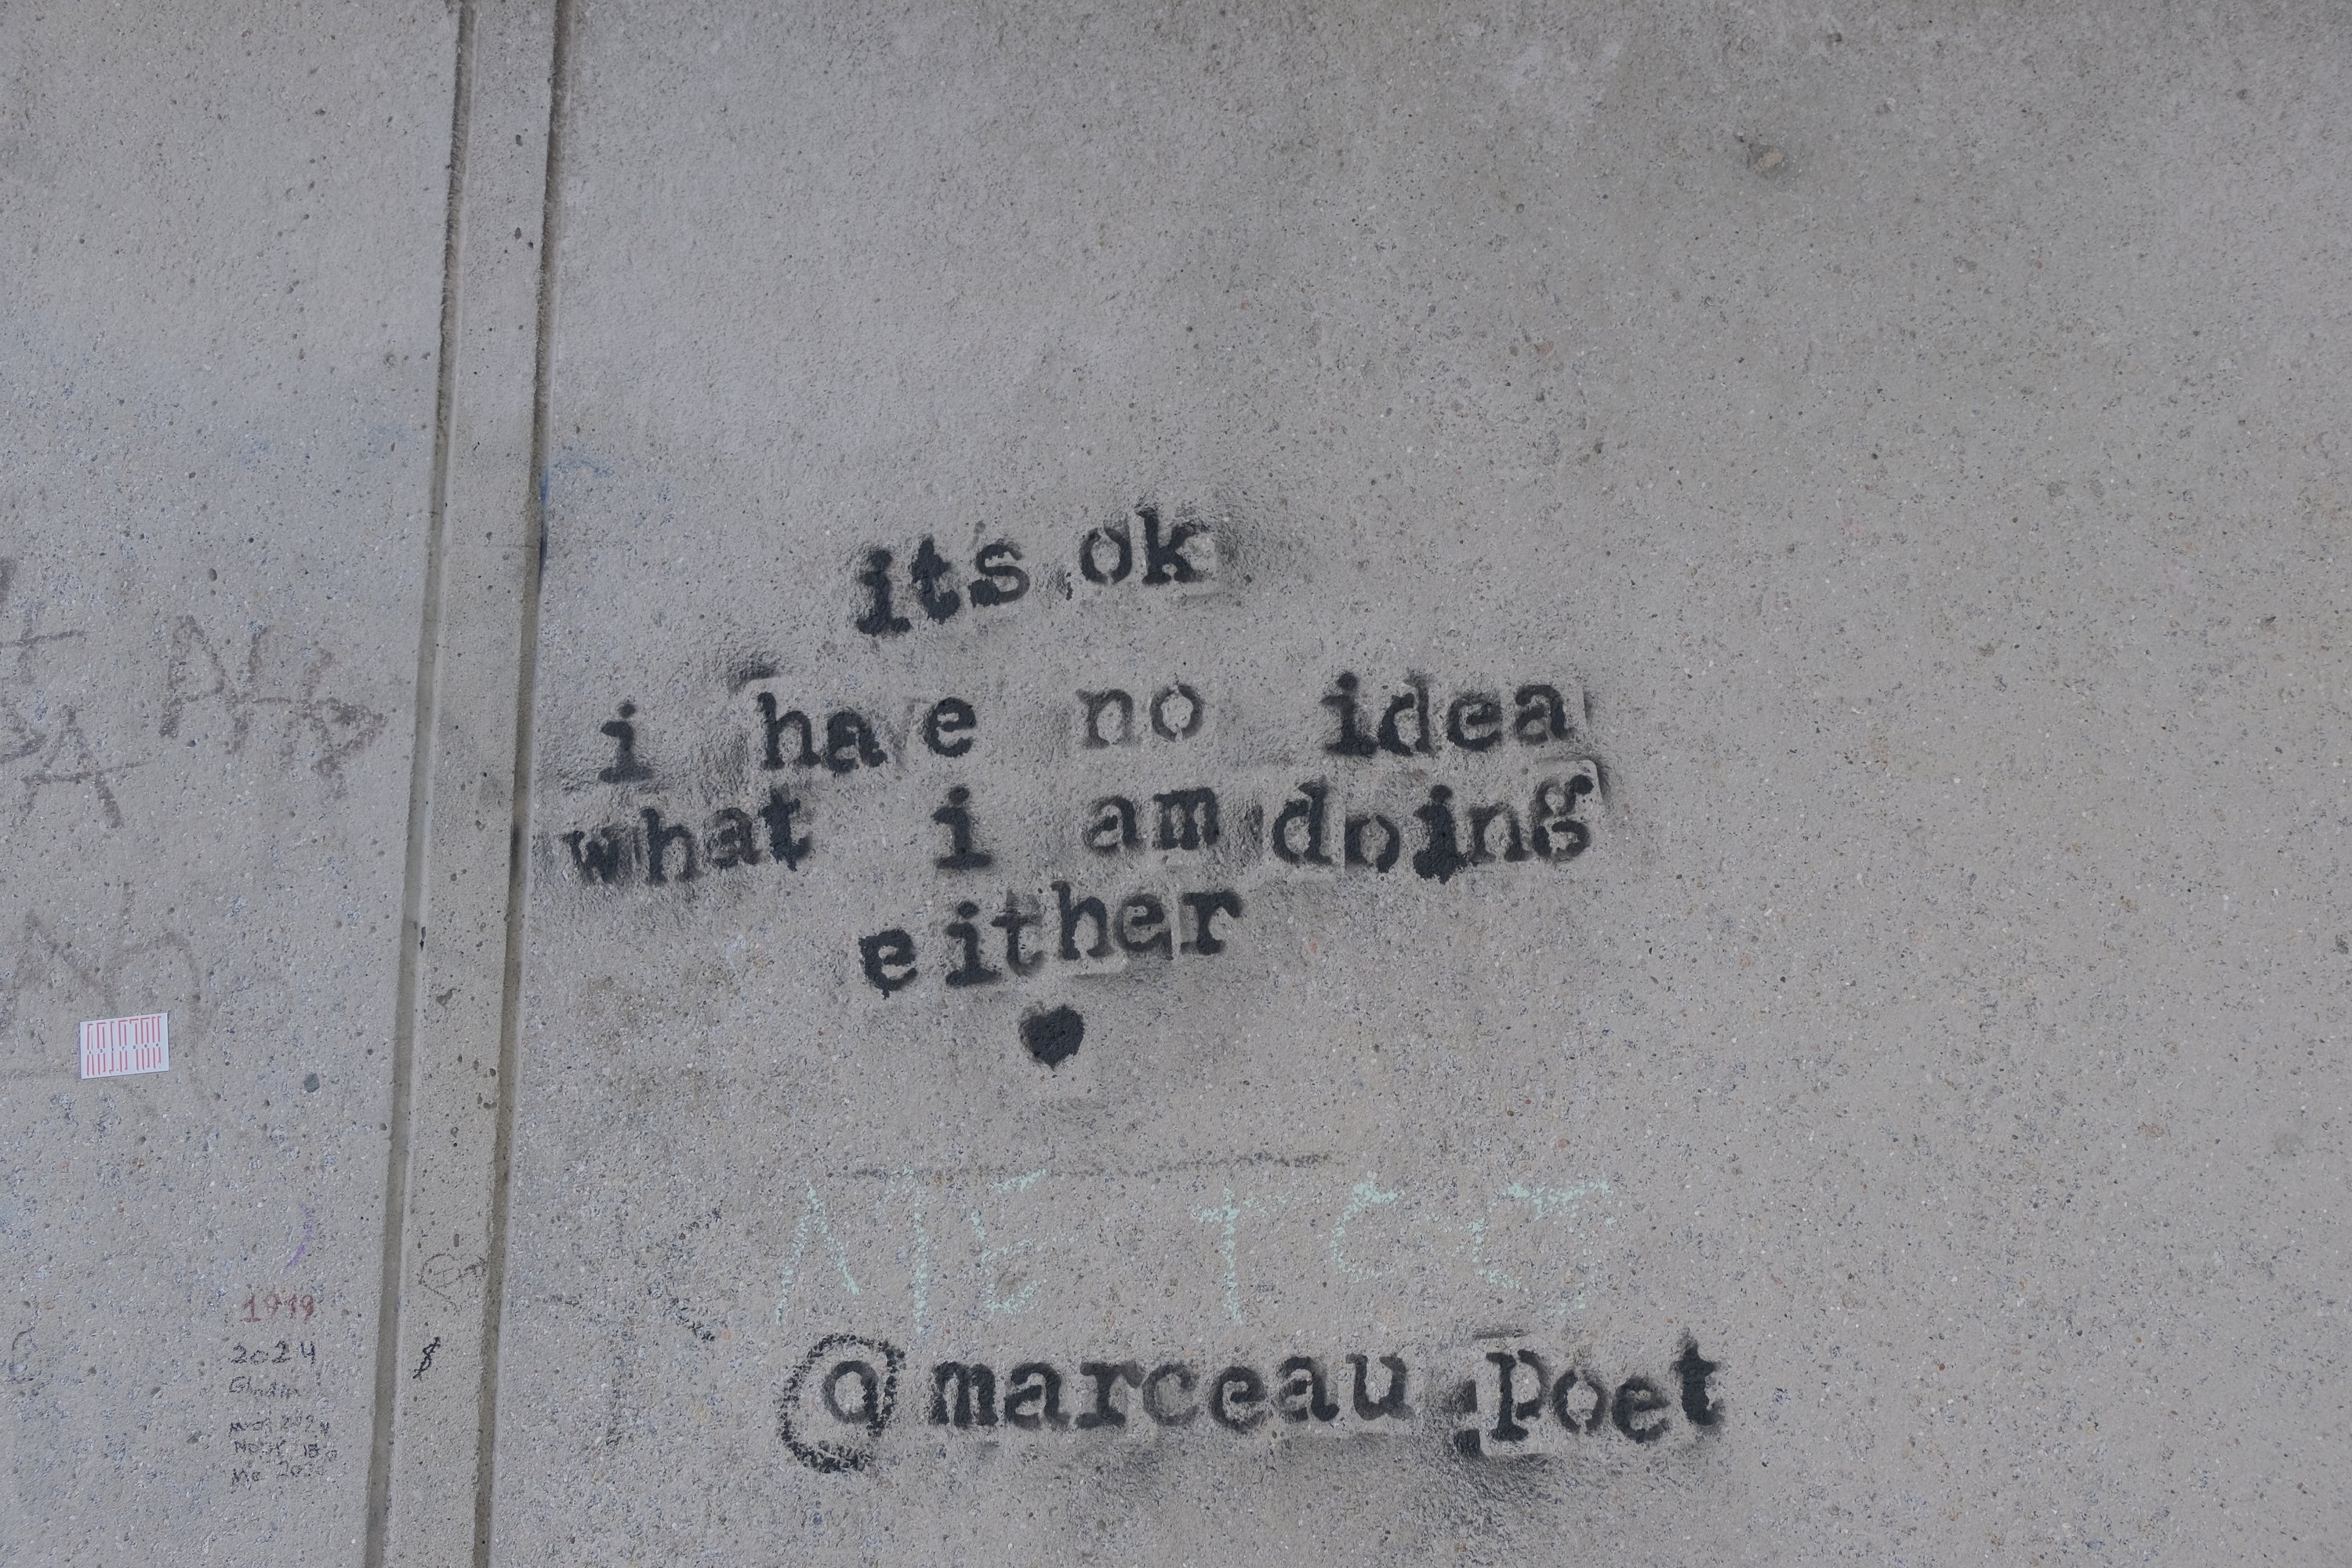 its ok
i have no idea
what i am doing
either
ME TOO
@marceau.Poet
AHh
A
Ah
1919
2024
$